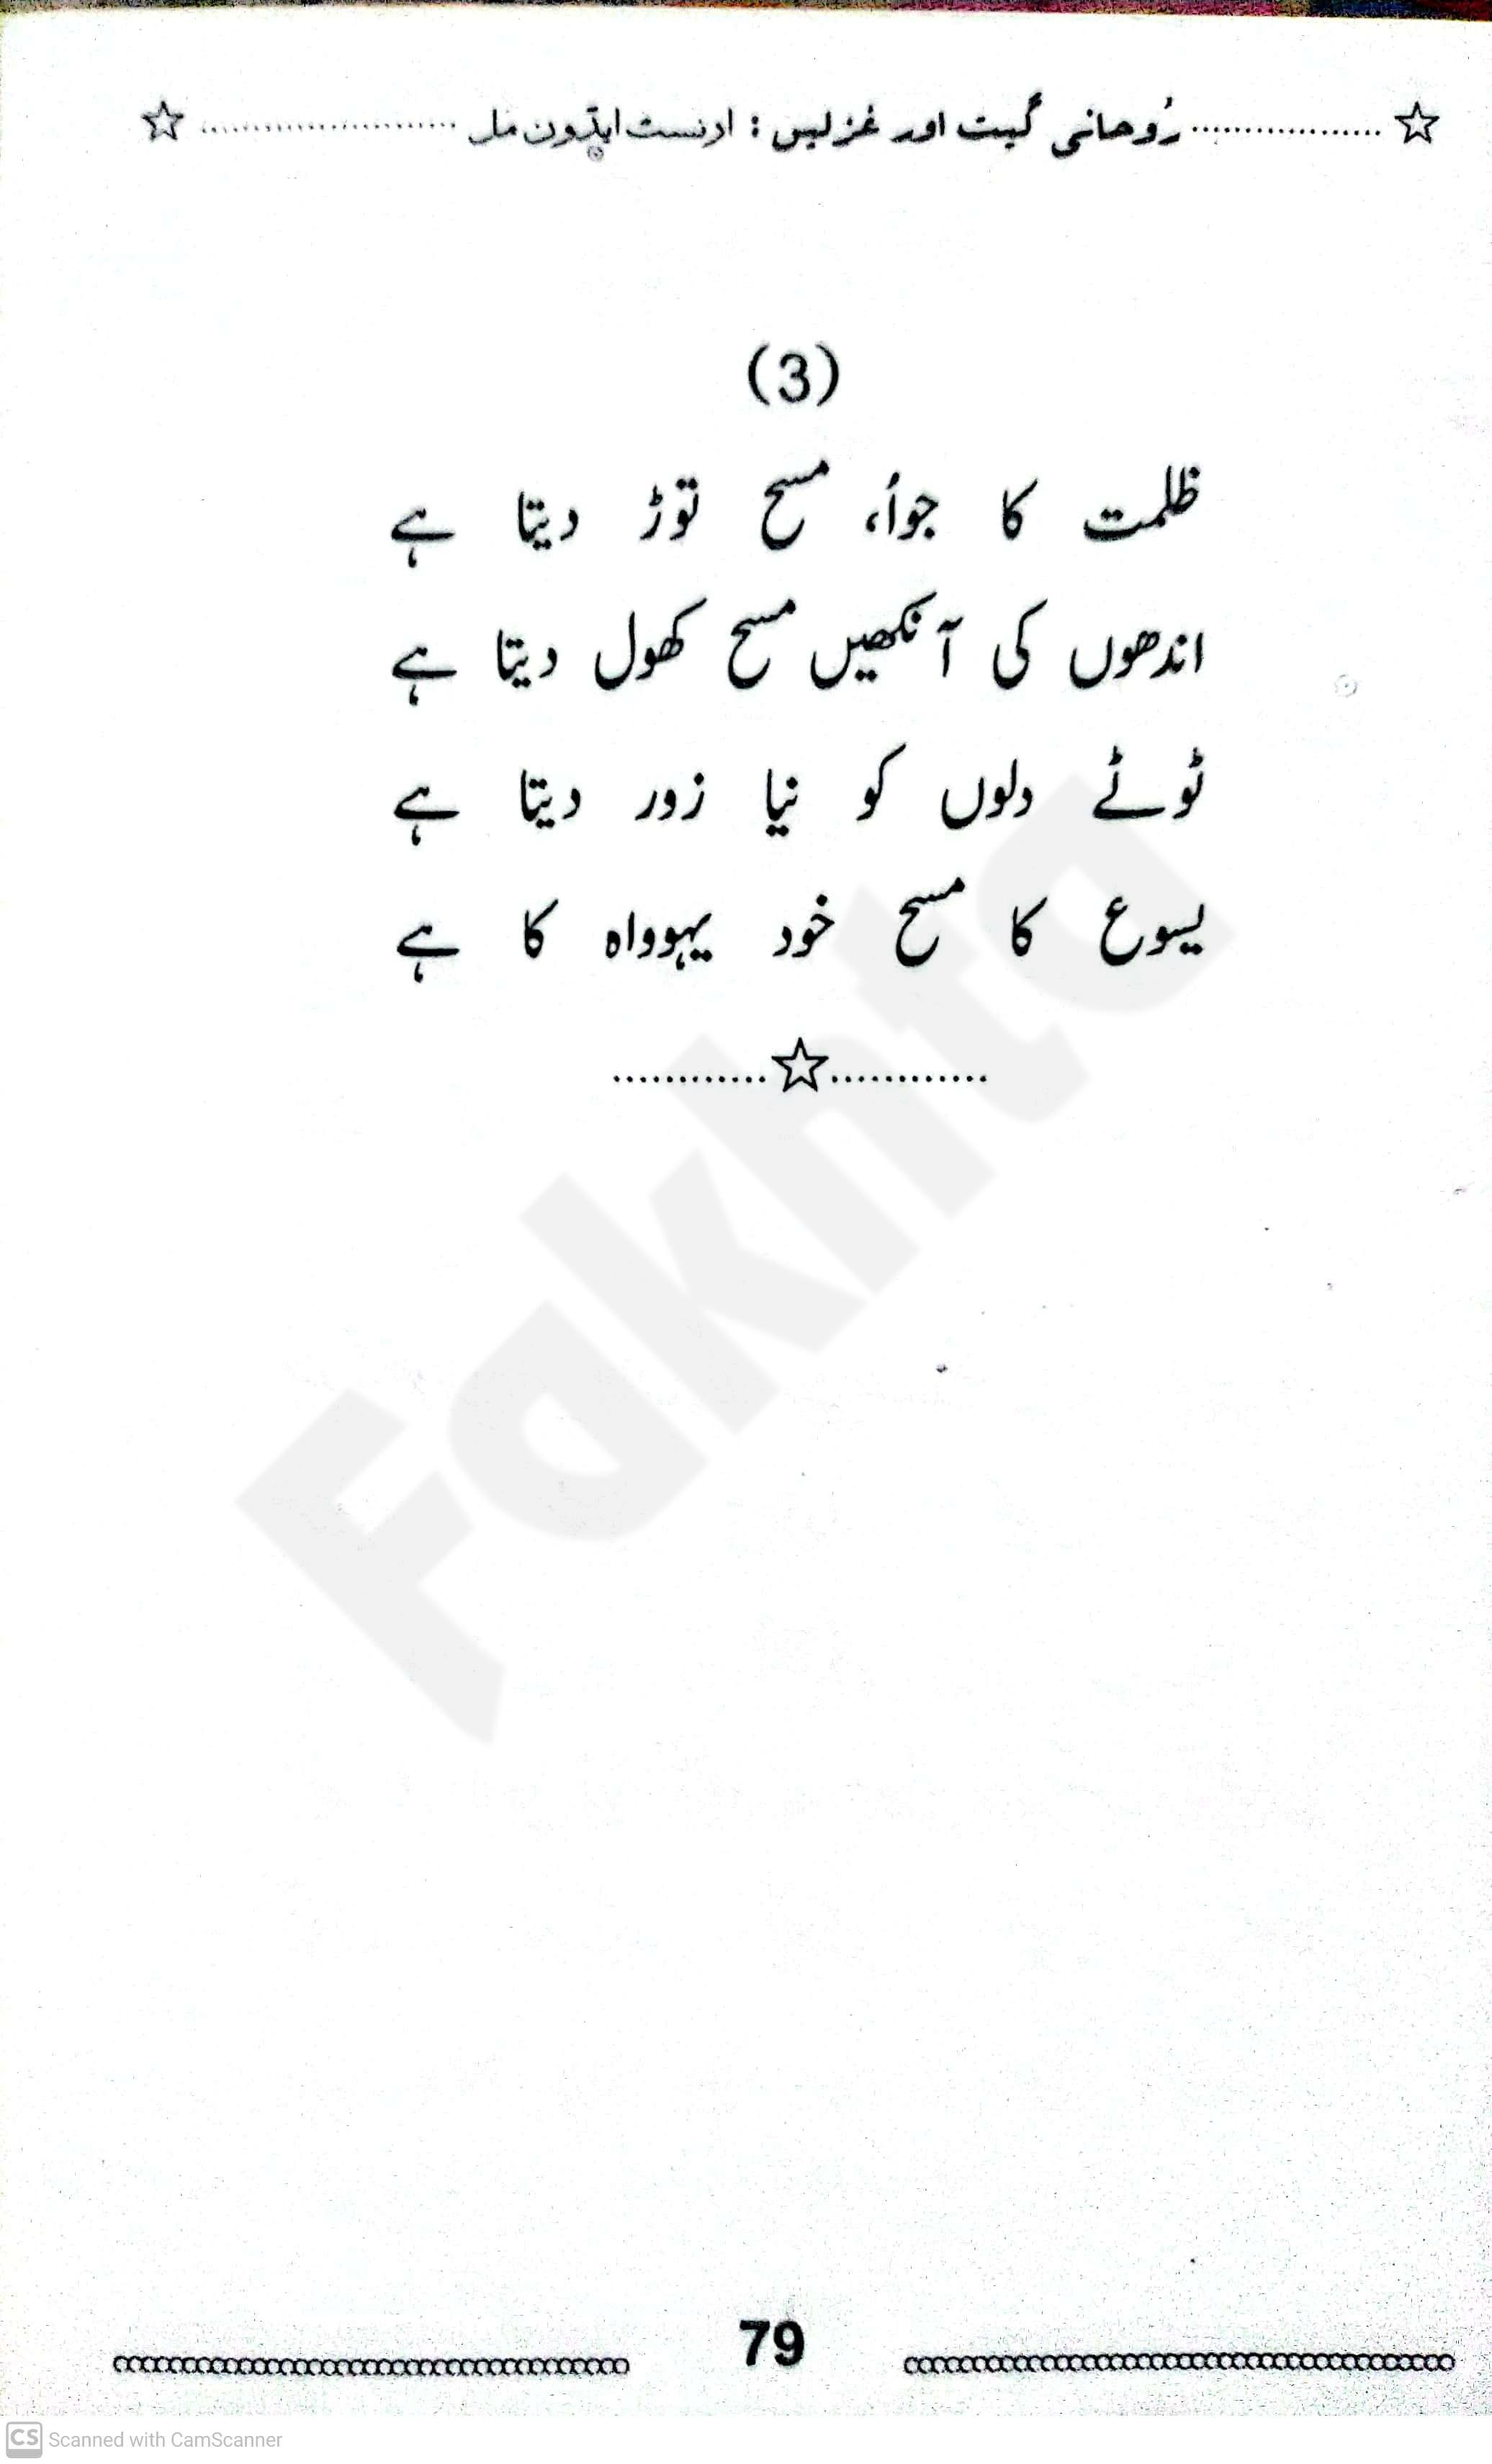 ☆.................رُوحانی گیت اور غزلیں : ارنسٹ ایڈون مل.......................☆
(3)
ظلمت کا جوأ، مسیح توڑ دیتا ہے
اندھوں کی آنکھیں مسیح کھول دیتا ہے
ٹوٹے دلوں کو نیا زور دیتا ہے
یسوع کا مسیح خود یہوواہ کا ہے
............☆............
Fakhta
79
CS Scanned with CamScanner